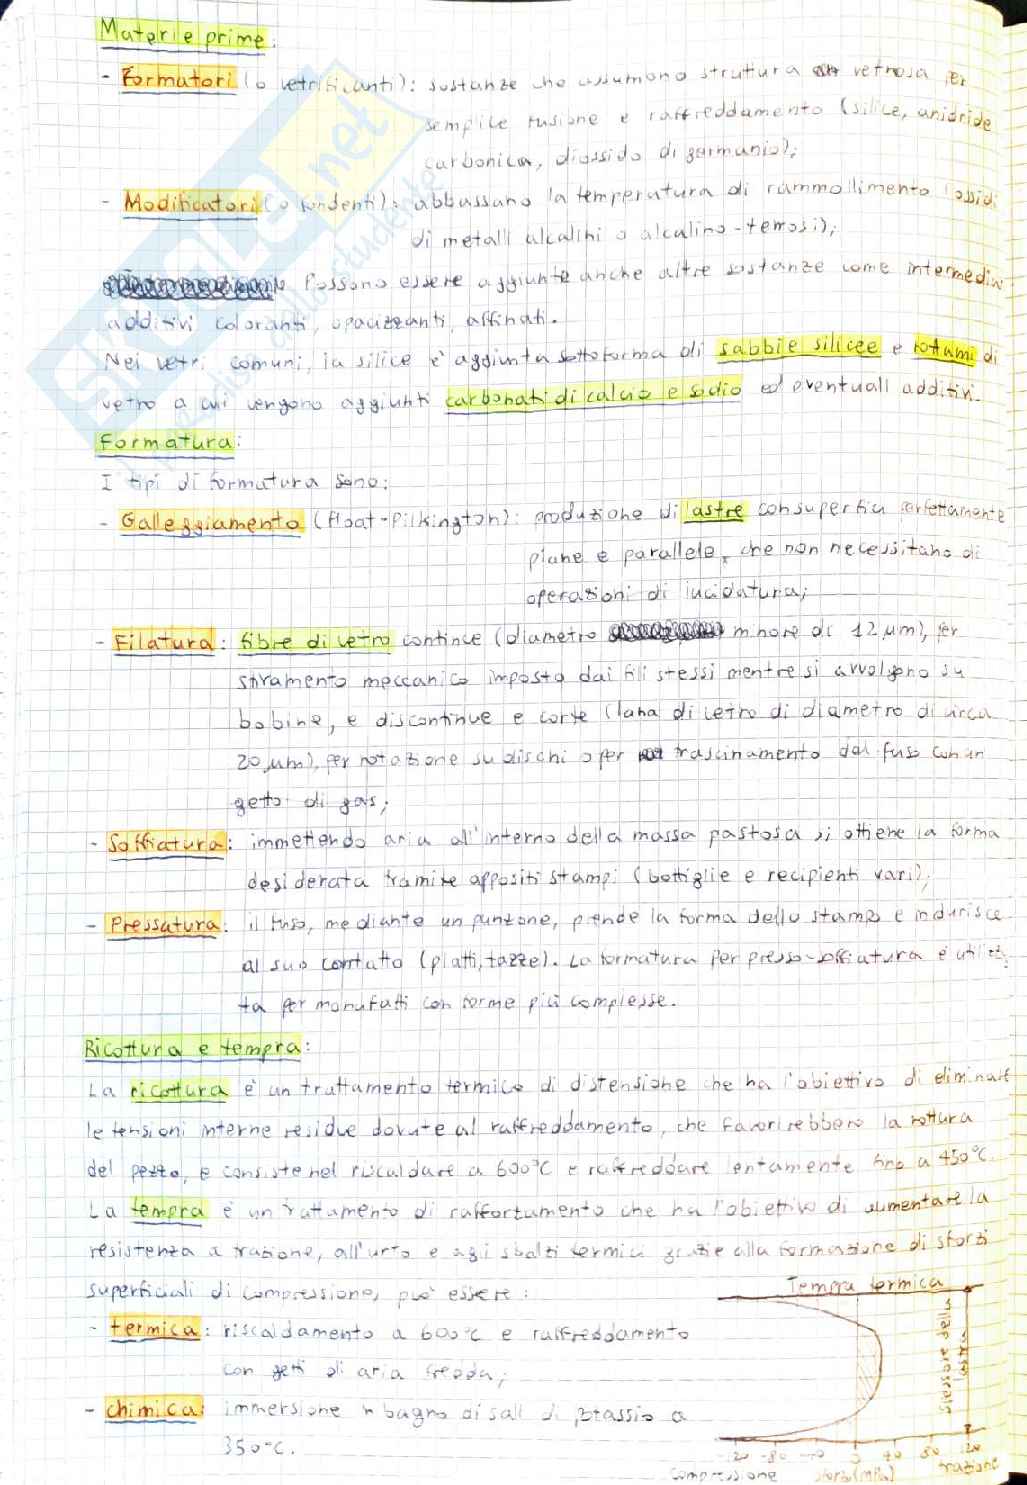 Materie prime:
- Formatori (o vetrificanti): sostanze che assumono struttura vetrosa per
semplice fusione e raffreddamento (silice, anidride
carbonica, diossido di germanio);
- Modificatori (o fondenti): abbassano la temperatura di rammollimento (ossidi
di metalli alcalini o alcalino-terrosi);
Possono essere aggiunte anche altre sostanze come intermedini
additivi coloranti, opacizzanti, affinati.
Nei vetri comuni, la silice è aggiunta sottoforma di sabbie silicee e rottami di
vetro a cui vengono aggiunti carbonati di calcio e sodio ed eventuali additivi.
Formatura:
I tipi di formatura sono:
- Galleggiamento (float-Pilkington): produzione di lastre con superfici perfettamente
piane e parallele, che non necessitano di
operazioni di lucidatura;
- Filatura: fibre di vetro continue (diametro minore di 12 μm), per
stiramento meccanico imposto dai fili stessi mentre si avvolgono su
bobine, e discontinue e corte (lana di vetro di diametro di circa
20 μm), per rotazione su dischi o per trascinamento del fuso con un
getto di gas;
- Soffiatura: immettendo aria all'interno della massa pastosa si ottiene la forma
desiderata tramite appositi stampi (bottiglie e recipienti vari);
- Pressatura: il fuso, mediante un punzone, prende la forma dello stampo e indurisce
al suo contatto (piatti, tazze). La formatura per presso-soffiatura è utilizza
ta per manufatti con forme più complesse.
Ricottura e tempra:
La ricottura è un trattamento termico di distensione che ha l'obiettivo di eliminare
le tensioni interne residue dovute al raffreddamento, che favorirebbero la rottura
del pezzo, e consiste nel riscaldare a 600°C e raffreddare lentamente fino a 450°C.
La tempra è un trattamento di rafforzamento che ha l'obiettivo di aumentare la
resistenza a trazione, all'urto e agli sbalzi termici grazie alla formazione di sforzi
superficiali di compressione, può essere:
- termica: riscaldamento a 600°C e raffreddamento
con getti di aria fredda;
- chimica: immersione in bagno di sali di potassio a
350°C.
Tempra termica
Spessore della
lastra
-120 -80 -40 0 40 80 120
compressione sforzi (MPa) trazione